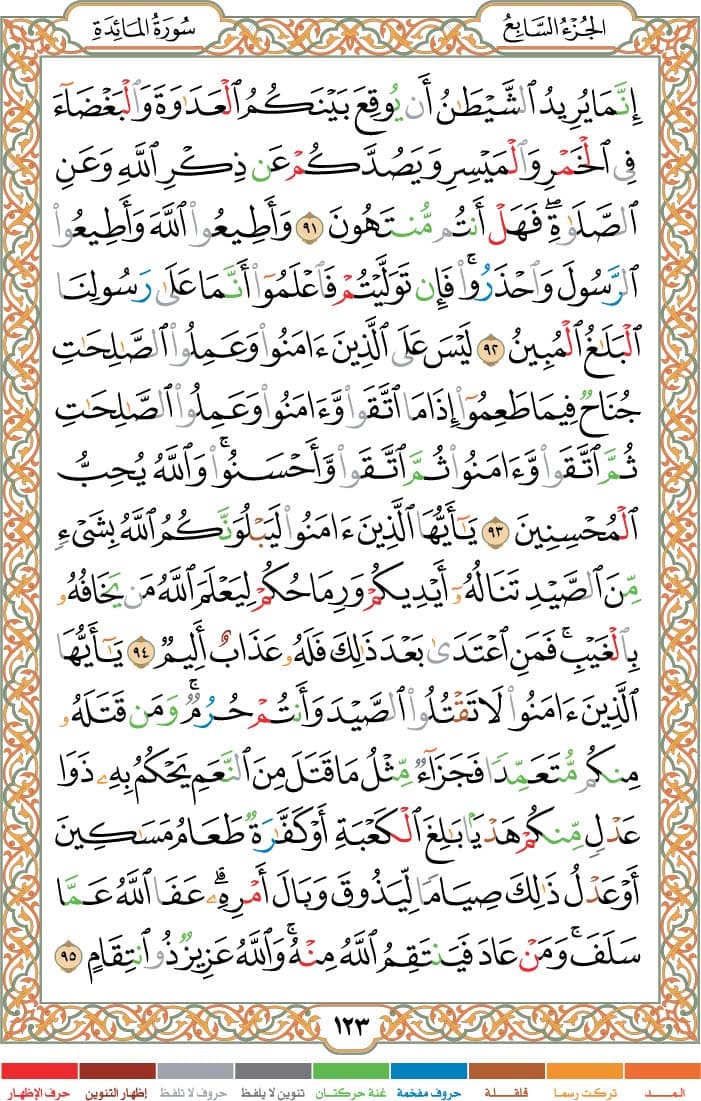 سُورَةُ المَائِدَةِ
الجُزْءُ السَّابِعُ
إِنَّمَا يُرِيدُ ٱلشَّيْطَٰنُ أَن يُوقِعَ بَيْنَكُمُ ٱلْعَدَٰوَةَ وَٱلْبَغْضَآءَ
فِى ٱلْخَمْرِ وَٱلْمَيْسِرِ وَيَصُدَّكُمْ عَن ذِكْرِ ٱللَّهِ وَعَنِ
ٱلصَّلَوٰةِ ۖ فَهَلْ أَنتُم مُّنتَهُونَ ٩١ وَأَطِيعُوا۟ ٱللَّهَ وَأَطِيعُوا۟
ٱلرَّسُولَ وَٱحْذَرُوا۟ ۚ فَإِن تَوَلَّيْتُمْ فَٱعْلَمُوٓا۟ أَنَّمَا عَلَىٰ رَسُولِنَا
ٱلْبَلَٰغُ ٱلْمُبِينُ ٩٢ لَيْسَ عَلَى ٱلَّذِينَ ءَامَنُوا۟ وَعَمِلُوا۟ ٱلصَّٰلِحَٰتِ
جُنَاحٌ فِيمَا طَعِمُوٓا۟ إِذَا مَا ٱتَّقَوا۟ وَّءَامَنُوا۟ وَعَمِلُوا۟ ٱلصَّٰلِحَٰتِ
ثُمَّ ٱتَّقَوا۟ وَّءَامَنُوا۟ ثُمَّ ٱتَّقَوا۟ وَّأَحْسَنُوا۟ ۗ وَٱللَّهُ يُحِبُّ
ٱلْمُحْسِنِينَ ٩٣ يَٰٓأَيُّهَا ٱلَّذِينَ ءَامَنُوا۟ لَيَبْلُوَنَّكُمُ ٱللَّهُ بِشَىْءٍ
مِّنَ ٱلصَّيْدِ تَنَالُهُۥٓ أَيْدِيكُمْ وَرِمَاحُكُمْ لِيَعْلَمَ ٱللَّهُ مَن يَخَافُهُۥ
بِٱلْغَيْبِ ۚ فَمَنِ ٱعْتَدَىٰ بَعْدَ ذَٰلِكَ فَلَهُۥ عَذَابٌ أَلِيمٌ ٩٤ يَٰٓأَيُّهَا
ٱلَّذِينَ ءَامَنُوا۟ لَا تَقْتُلُوا۟ ٱلصَّيْدَ وَأَنتُمْ حُرُمٌ ۚ وَمَن قَتَلَهُۥ
مِنكُم مُّتَعَمِّدًا فَجَزَآءٌ مِّثْلُ مَا قَتَلَ مِنَ ٱلنَّعَمِ يَحْكُمُ بِهِۦ ذَوَا
عَدْلٍ مِّنكُمْ هَدْيًۢا بَٰلِغَ ٱلْكَعْبَةِ أَوْ كَفَّٰرَةٌ طَعَامُ مَسَٰكِينَ
أَوْ عَدْلُ ذَٰلِكَ صِيَامًا لِّيَذُوقَ وَبَالَ أَمْرِهِۦ ۗ عَفَا ٱللَّهُ عَمَّا
سَلَفَ ۚ وَمَنْ عَادَ فَيَنتَقِمُ ٱللَّهُ مِنْهُ ۗ وَٱللَّهُ عَزِيزٌ ذُو ٱنتِقَامٍ ٩٥
١٢٣
المــد تركت رسما قلقلة حروف مفخمة غنة حركتان تنوين لا يلفظ حروف لا تلفظ إظهار التنوين حرف الإظهار